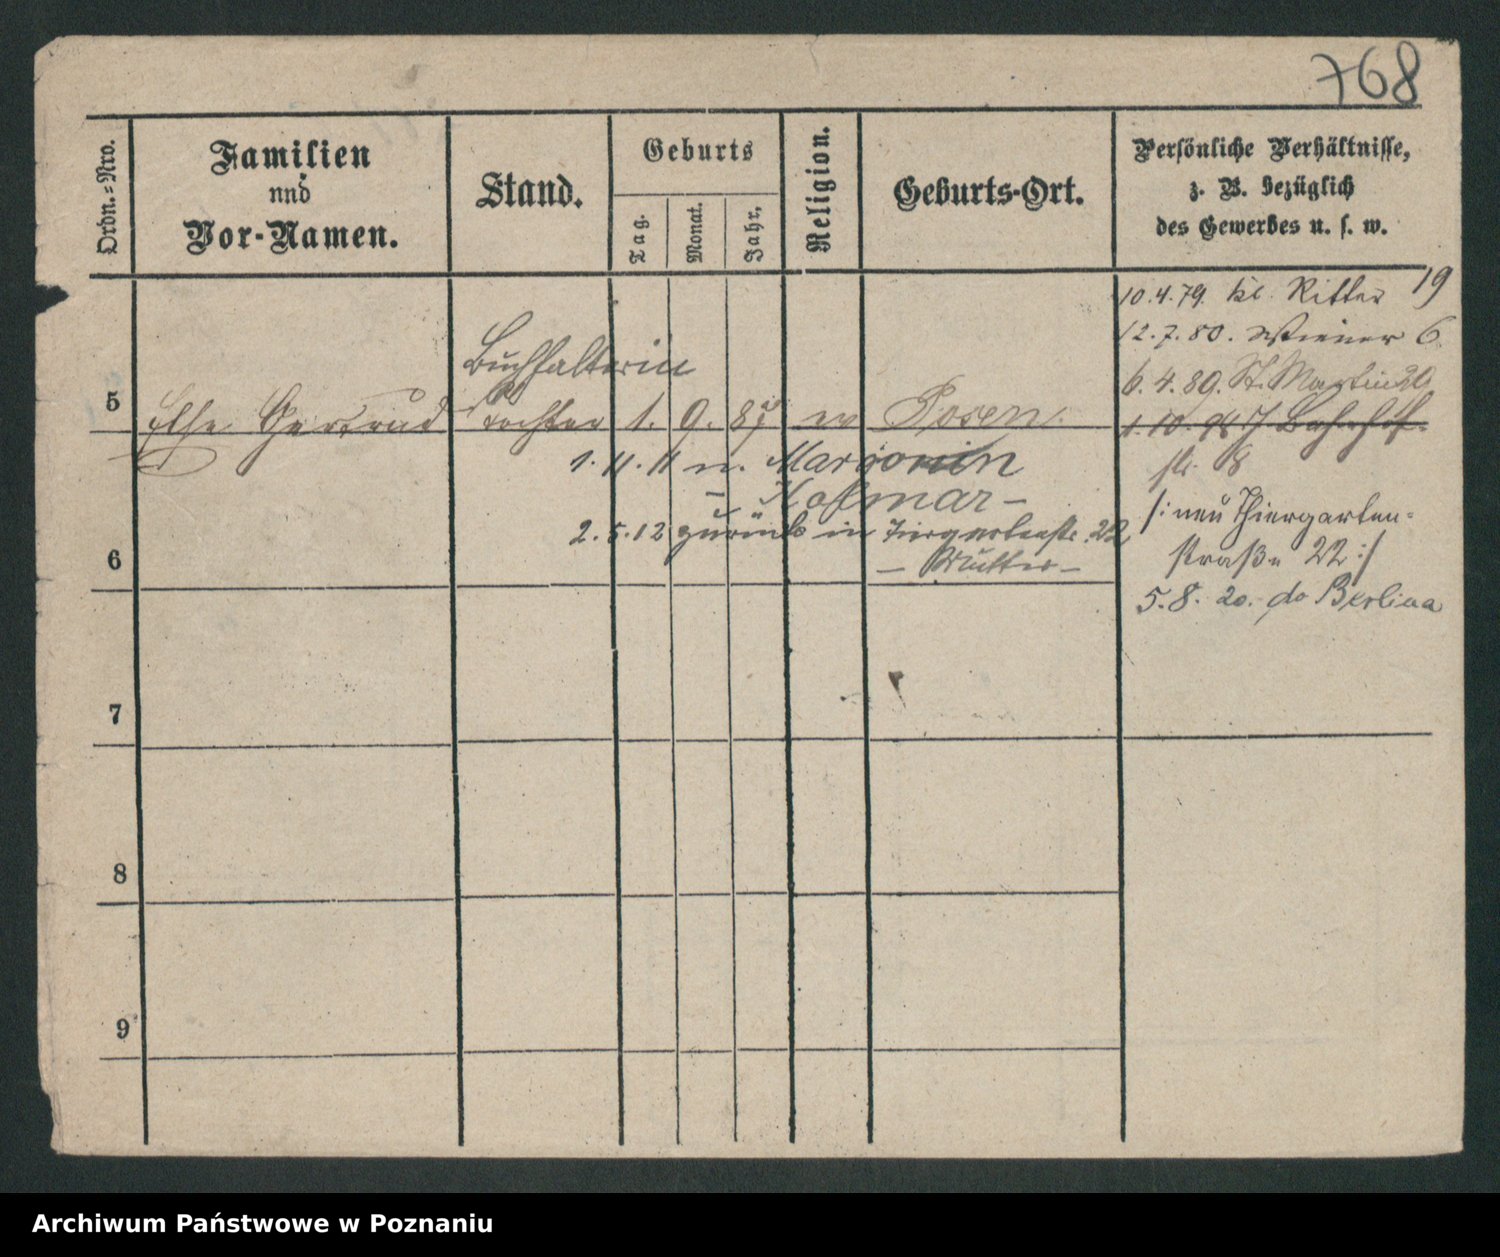 768
Ordn.-Nro.
Familien
und
Vor-Namen.
Stand.
Geburts
Tag.
Monat.
Jahr.
Religion.
Geburts-Ort.
Persönliche Verhältnisse,
z. B. bezüglich
des Gewerbes u. s. w.
10.4.79. kl. Ritter 19
12.7.80. Wiener 6
6.4.89. St. Martin 20
1.10. Bahnhof-
str. 8
/: neu Thiergarten-
straße 22 :/
5.8.20. do Berlina
5
Buchhalterin
Else Gertrud Tochter 1. 9. ev Posen.
1.11.11 n. Margonin
- Kolmar -
6
2.5.12 zurück in Tiergartenstr. 22
- Mutter -
7
8
9
Archiwum Państwowe w Poznaniu